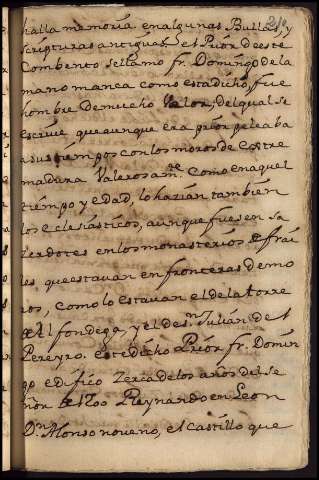 210
halla memoria en algunas Bullas, y
scripturas antiguas. el Prior de este
Combento se llamo fr. Domingo de la
mano manca como esta dicho, fue
hombre de mucho Valor, del qual se
escrive que aunque era prior peleaba
a sus tiempos con los moros de Extre
madura Valerosam.te Como en aquel
tiempo y edad, lo hazian tambien
los eclesiásticos, aunque fuesen sa
zerdotes en los monasterios de frai
les, que estavan en fronteras de mo
ros, como lo estavan el de la torre
de Alfondega, y el de S.n Julián de el
Pereyro. este dicho Prior fr. Domin
go edifico Zerca de los años del Se
ñor de 1200 Reynando en Leon
D.n Alonso noveno, el castillo que